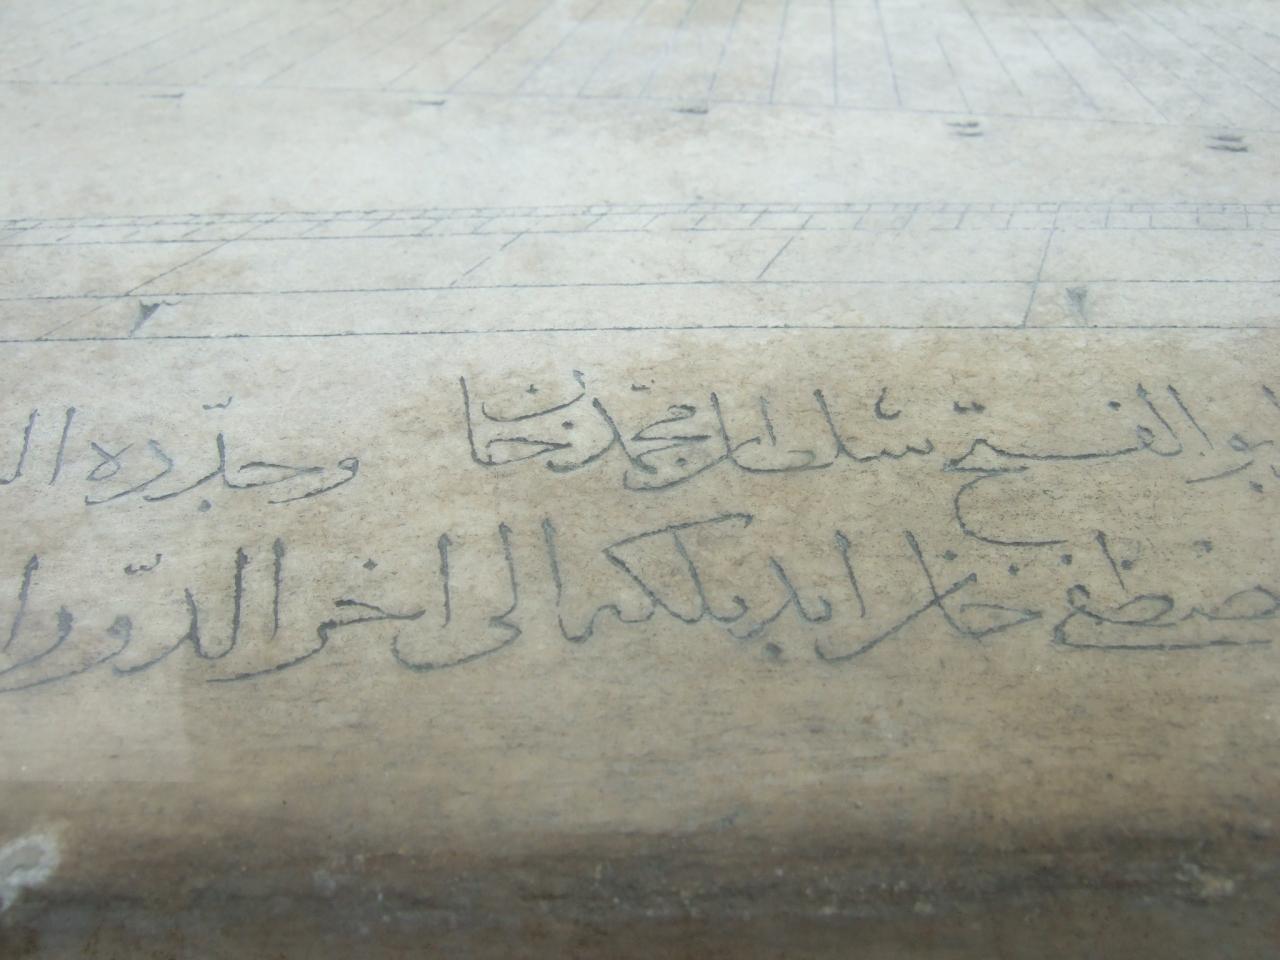 بو الفتح سلطان محمد خان وجدده ال
مصطفى خان ابد ملكه الى اخر الدوران